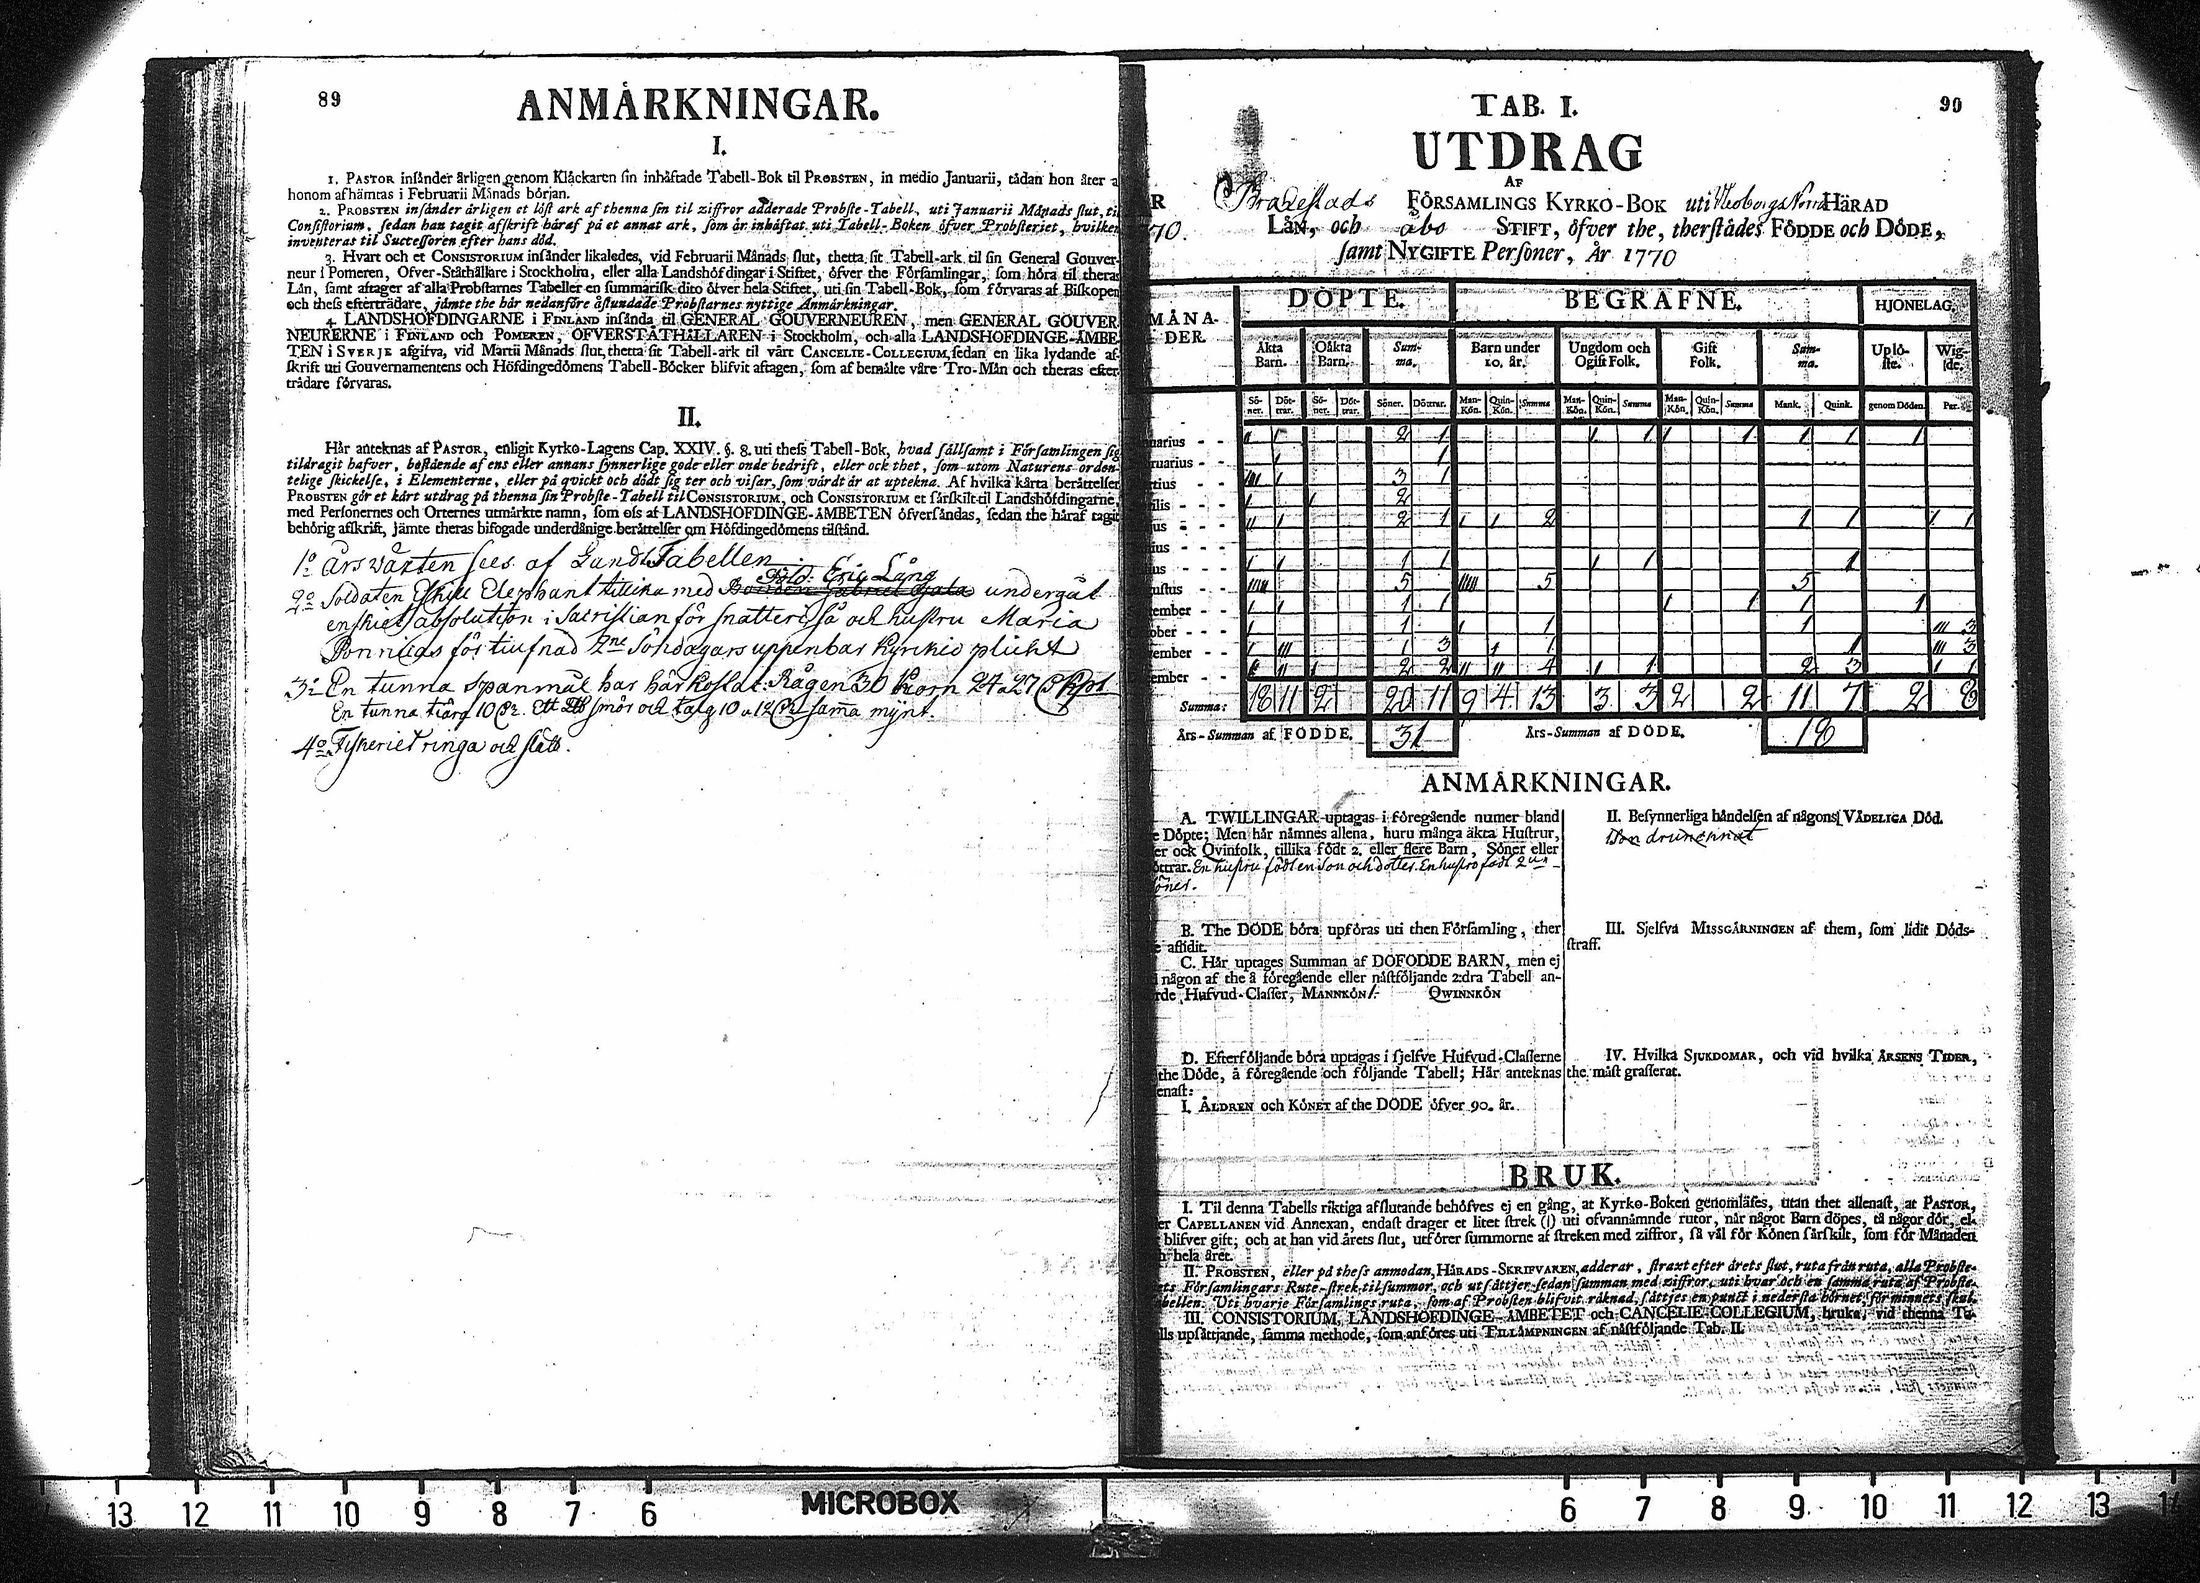 89
ANMÅRKNINGAR.
I.
1. PASTOR insånder årligen genom Klåckaren sin inhåftade Tabell-Bok til PROBSTEN, in medio Januarii, tådan hon åter a
honom afhåmtas i Februarii Månads början.
2. PROBSTEN insånder årligen et löst ark af thenna sin til ziffror adderade Probste-Tabell, uti Januarii Månads slut, til
Consistorium, sedan han tagit afskrift håraf på et annat ark, som år inhåftat uti Tabell-Boken öfver Probsteriet, hvilken
inventeras til Successoren efter hans död.
3. Hvart och et CONSISTORIUM insånder likaledes, vid Februarii Månads slut, thetta sit Tabell-ark til sin General Gouver-
neur i Pomeren, Ofver-Ståthållare i Stockholm, eller alla Landshöfdingar i Stiftet, öfver the Församlingar, som höra til theras
Lån, samt aftager af alla Probstarnes Tabeller en summarisk dito öfver hela Stiftet, uti sin Tabell-Bok, som förvaras af Biskopen
och thess efterträdare, jåmte the hår nedanföre åstundade Probstarnes nyttige Anmårkningar.
4. LANDSHÖFDINGARNE i FINLAND insånda til GENERAL GOUVERNEUREN, men GENERAL GOUVER-
NEURERNE i FINLAND och POMEREN, ÖFVERSTÅTHÅLLAREN i Stockholm, och alla LANDSHÖFDINGE-ÅMBE-
TEN i SVERJE afgifva, vid Martii Månads slut, thetta sit Tabell-ark til vårt CANCELIE-COLLEGIUM, sedan en lika lydande af-
skrift uti Gouvernamentens och Höfdingedömens Tabell-Böcker blifvit aftagen, som af bemålte våre Tro-Mån och theras efter-
trådare förvaras.
II.
Hår anteknas af PASTOR, enligit Kyrko-Lagens Cap. XXIV. §. 8. uti thess Tabell-Bok, hvad sållsamt i Församlingen sig
tildragit hafver, bestående af ens eller annans synnerlige gode eller onde bedrift, eller ock thet, som utom Naturens orden-
telige skickelse, i Elementerne, eller på qvickt och dödt sig ter och visar, som vårdt år at uptekna. Af hvilka kårta beråttelser
PROBSTEN gör et kårt utdrag på thenna sin Probste-Tabell til CONSISTORIUM, och CONSISTORIUM et sårskilt til Landshöfdingarne,
med Personernes och Orternes utmårkte namn, som oss af LANDSHÖFDINGE-ÅMBETEN öfversåndas, sedan the håraf tagit
behörig afskrift, jåmte theras bifogade underdånige beråttelser om Höfdingedömens tilstånd.
1:o Årswäxten sees af Lands Tabellen
Sold: Eric Lång
2:o Soldaten Eskill Elephant tillika med undergåt
enskiet absolution i Sacristian för snatteri, så och hustru Maria
för tiufnad 2:ne Söndagars uppenbar Kyrkio plicht
3:o En tunna spanmål har här kostat: Rågen 30 Korn 24 a 27
En tunna tiära 10 smör och talg 10 a 12 samma mynt.
4:o Fiskeriet ringa och slätt.
90
TAB. I.
UTDRAG
AF
Brahestads FÖRSAMLINGS KYRKO-BOK uti Norra HÄRAD
LÅN, och åbo STIFT, öfver the, therstådes FÖDDE och DÖDE,
samt NYGIFTE Personer, År 1770
MÅNA-
DER.
DÖPTE. BEGRAFNE. HJONELAG.
Åkta Barn. Oåkta Barn. Sum-ma. Barn under 10. år. Ungdom och Ogift Folk. Gift Folk. Sum-ma. Uplö-ste. Wig-de.
Sö-ner. Döt-trar. Sö-ner. Döt-trar. Söner. Döttrar. Man-Kön. Quin-Kön. Summa Man-Kön. Quin-Kön. Summa Man-Kön. Quin-Kön. Summa Mank. Quink. genom Döden. Par.
nuarius - - II I 2 1 I 1 I 1 1 1 I
ruarius - - I 1
rtius - - III I 3 1
rilis - - I I 2
jus - - II I 2 1 I I 2 1 1 I 1
nius - -
lius - - I I 1 1 I 1 1
gustus - - IIIII 5 IIIII 5 5
tember - - I I 1 1 I 1 1 I
tober - - I 1 I 1 1 III 3
vember - - I III 1 3 I 1 1 III 3
cember - - I II I 2 2 II II 4 I 1 2 3 I 1
Summa: 18 11 2 20 11 9 4 13 3 3 2 2 11 7 2 8
Års-Summan af FÖDDE. 31 Års-Summan af DÖDE. 18
ANMÅRKNINGAR.
A. TWILLINGAR uptagas i föregående numer bland
e Döpte; Men hår nåmnes allena, huru många åkta Hustrur,
er ock Qvinfolk, tillika födt 2. eller flere Barn, Söner eller
öttrar. En hustru födt en son och dotter. En hustro födt 2:ne
söner.
B. The DÖDE böra upföras uti then Församling, ther
e afsidit.
C. Hår uptages Summan af DÖFÖDDE BARN, men ej
i någon af the å föregående eller nåstföljande 2:dra Tabell an-
orde Hufvud-Classer, MANNKÖN 1. QWINNKÖN
D. Efterföljande böra uptagas i sjelfve Hufvud-Classerne
the Döde, å föregående och följande Tabell; Hår anteknas
enast:
I. ÅLDREN och KÖNET af the DÖDE öfver 90. år.
II. Besynnerliga håndelsen af någons VÅDELIGA Död.
drunknat
III. Sjelfva MISSGÅRNINGEN af them, som lidit Döds-
straff.
IV. Hvilka SJUKDOMAR, och vid hvilka ÅRSENS TIDER,
the måst grasserat.
BRUK.
I. Til denna Tabells riktiga afslutande behöfves ej en gång, at Kyrko-Boken genomlåses, utan thet allenast, at PASTOR,
er CAPELLANEN vid Annexan, endast drager et litet strek (I) uti ofvannåmnde rutor, når något Barn döpes, tå någor dör, el-
blifver gift; och at han vid årets slut, utförer summorne af streken med ziffror, så vål för Könen sårskilt, som för Månaden
h hela året.
II. PROBSTEN, eller på thess anmodan, HÅRADS-SKRIFVAREN, adderar, straxt efter årets slut, ruta från ruta, alla Probste-
ets Församlingars Rute-strek til summor, och utsåttjer sedan summan med ziffror, uti hvar och en samma ruta af Probste-
abellen. Uti hvarje Församlings ruta, som af Probsten blifvit råknad, såttjes en punct i nedersta hörnet, för minnets skul.
III. CONSISTORIUM, LANDSHÖFDINGE-ÅMBETET och CANCELIE-COLLEGIUM, bruka, vid thenna Ta-
lls upsåttjande, samma methode, som anföres uti TILLÅMPNINGEN af nåstföljande Tab. II.
13 12 11 10 9 8 7 6 MICROBOX 6 7 8 9 10 11 12 13 14